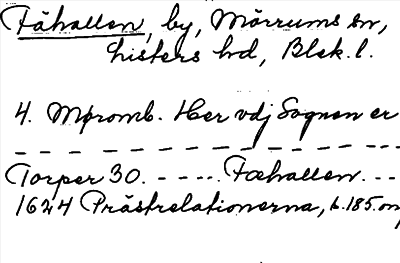 Fähallen, by, Mörrums sn,
Listers hd, Blek. l.
4. Mpromb. Her vdj Sognen er
Torper 30. - - - - - Fæhallen. - -
1624 Prästrelationerna, h. 185. om